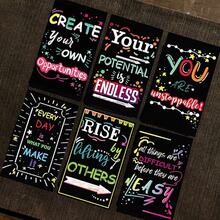 CREATE
YOUR
OWN
Opportunities
Your
POTENTIAL
IS
ENDLESS
YOU
ARE
unstoppable!
EVERY
DAY
IS
WHAT YOU
MAKE
IT
RISE
by
lifting
OTHERS
all things are
DIFFICULT
before they are
EASY